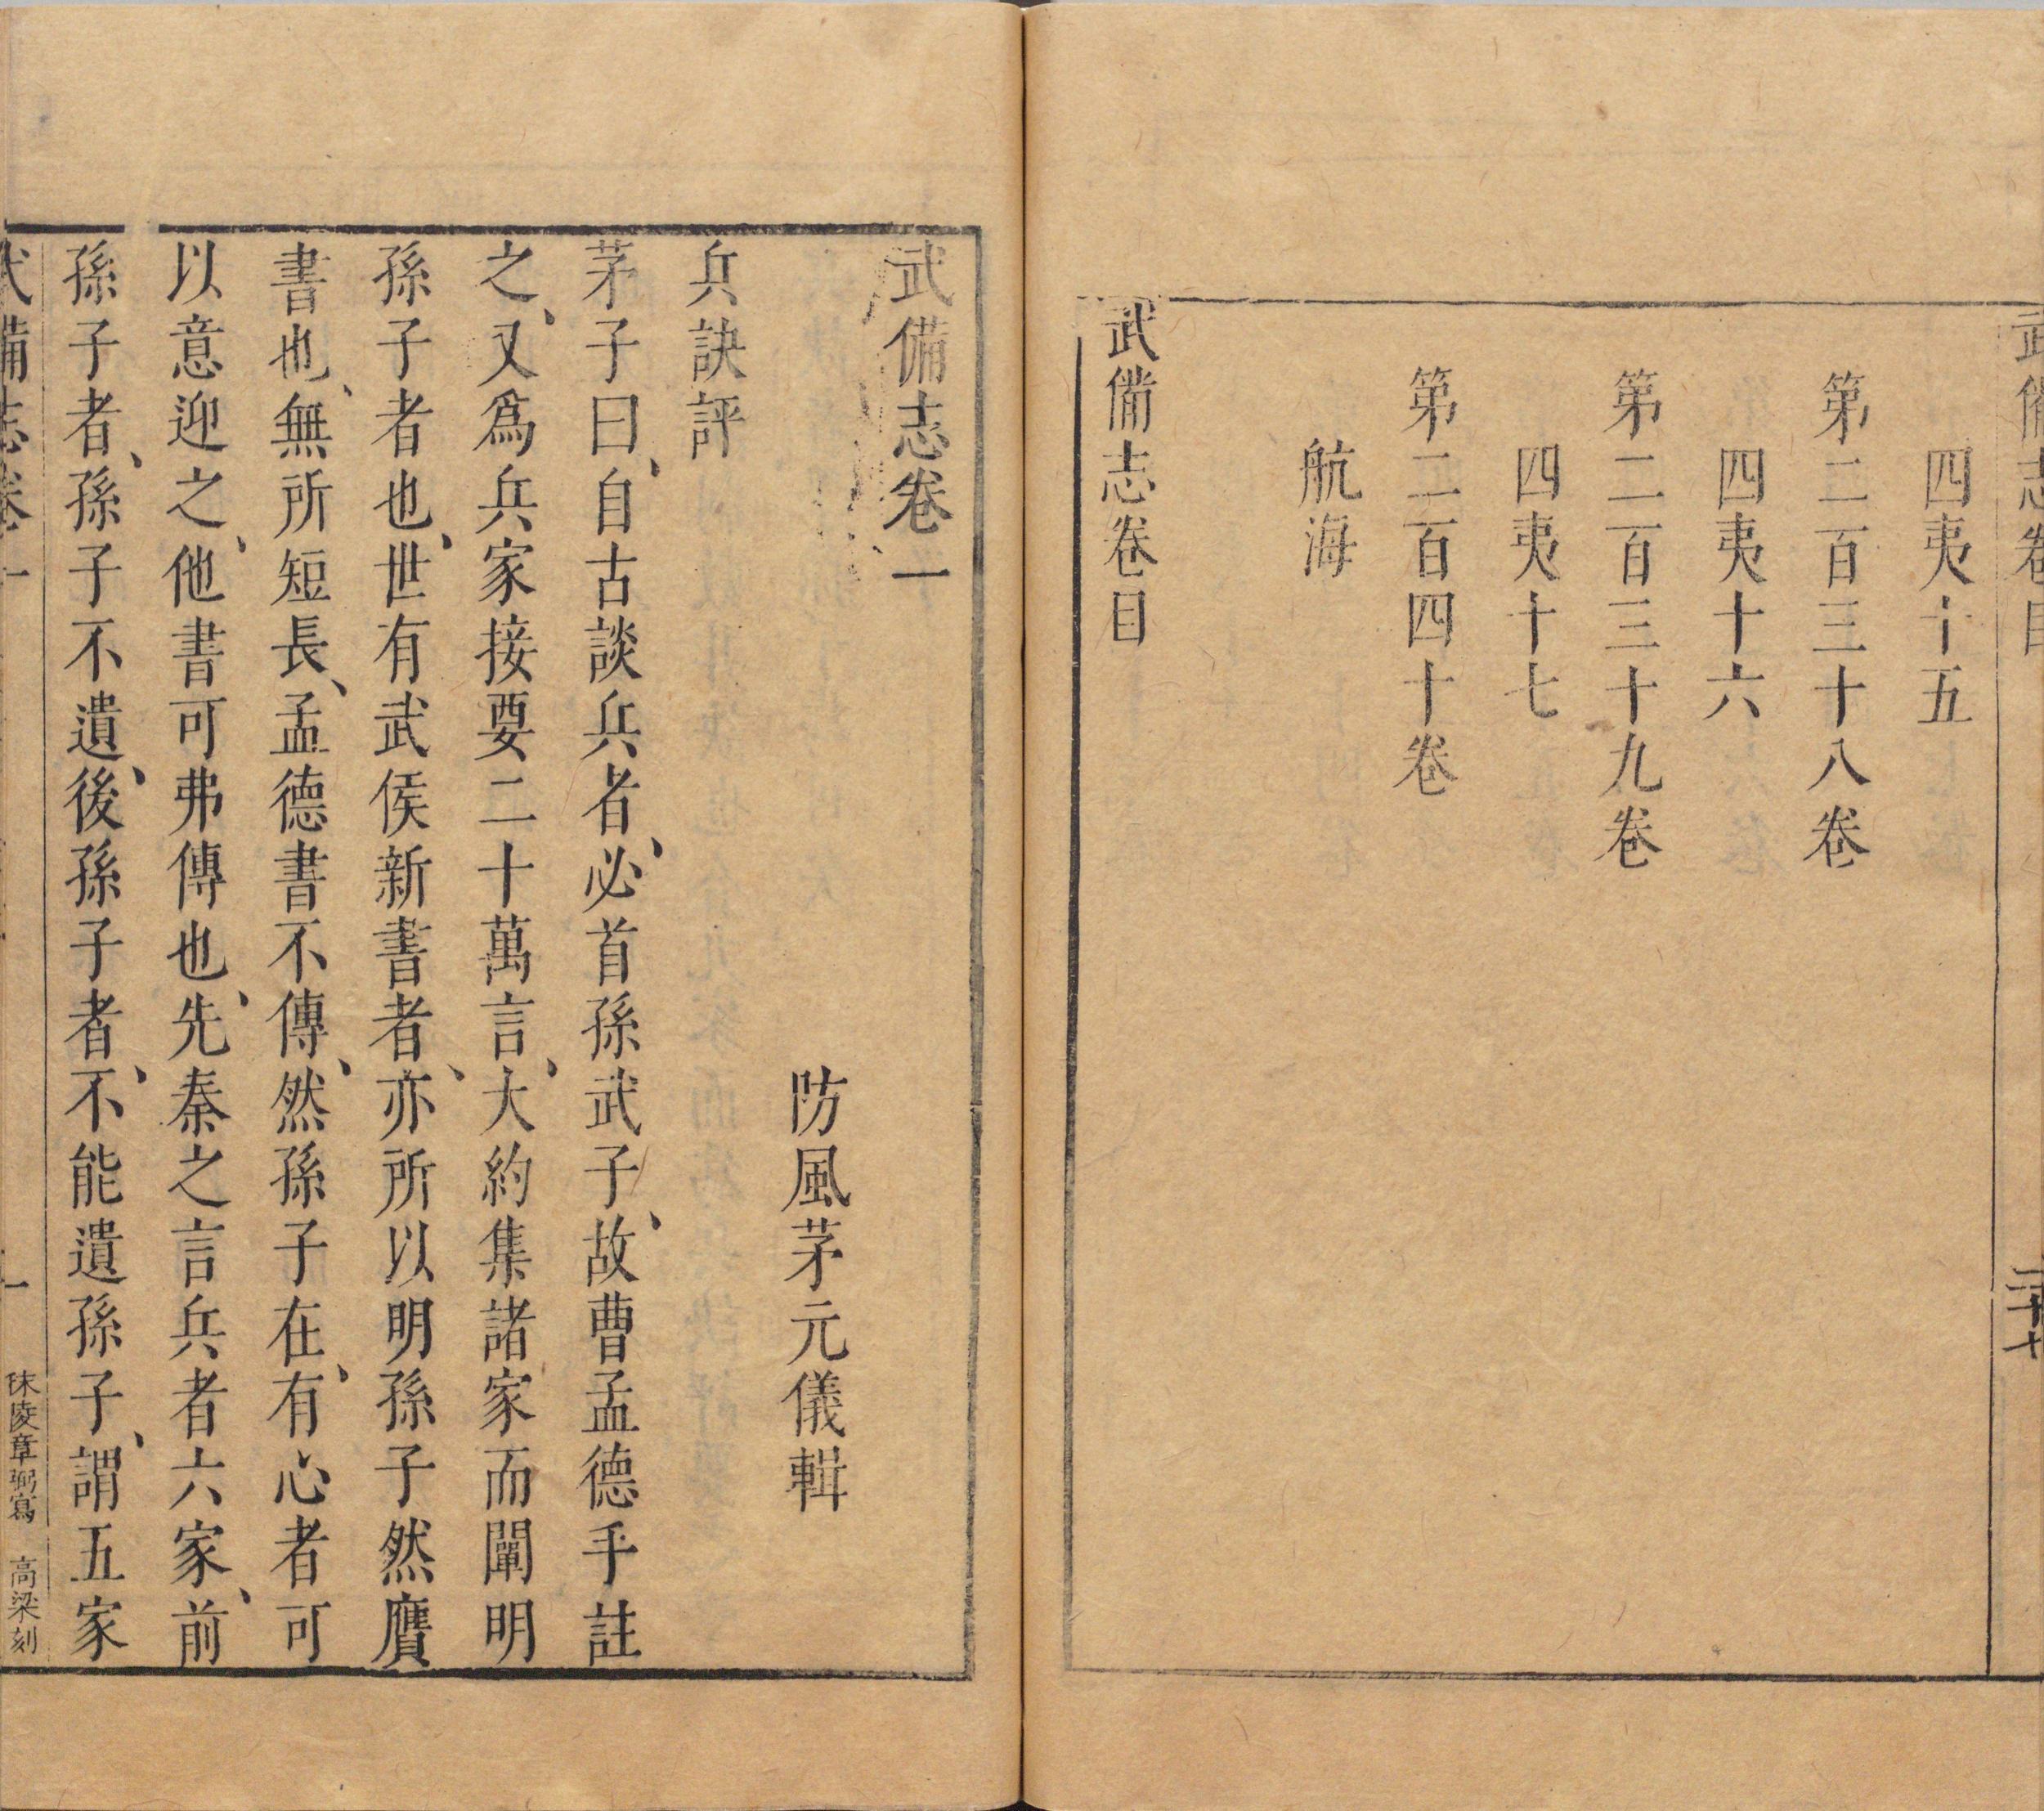 武備志卷目
二十七
四夷十五
第二百三十八卷
四夷十六
第二百三十九卷
四夷十七
第二百四十卷
航海
武備志卷目
武備志卷一
防風茅元儀輯
兵訣評
茅子曰、自古談兵者、必首孫武子、故曹孟德手註
之、又爲兵家接要二十萬言、大約集諸家而闡明
孫子者也、世有武侯新書者、亦所以明孫子然贗
書也、無所短長、孟德書不傳、然孫子在、有心者可
以意迎之、他書可弗傳也、先秦之言兵者六家、前
孫子者、孫子不遺、後孫子者、不能遺孫子、謂五家
武備志卷一
一
秣陵章弼寫 高梁刻